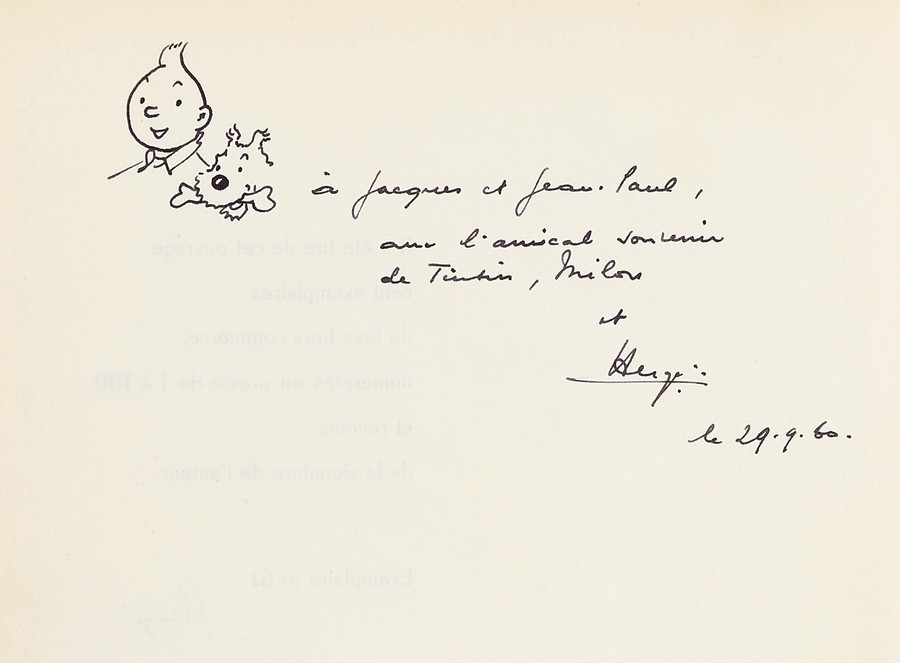 à Jacques et Jean-Paul,
avec l'amical souvenir
de Tintin, Milou
et
Hergé
le 29.9.60.
a été tiré de cet ouvrage
cent exemplaires
de luxe hors commerce,
numérotés sur presse de 1 à 100
et revêtus
de la signature de l'auteur.
Exemplaire no